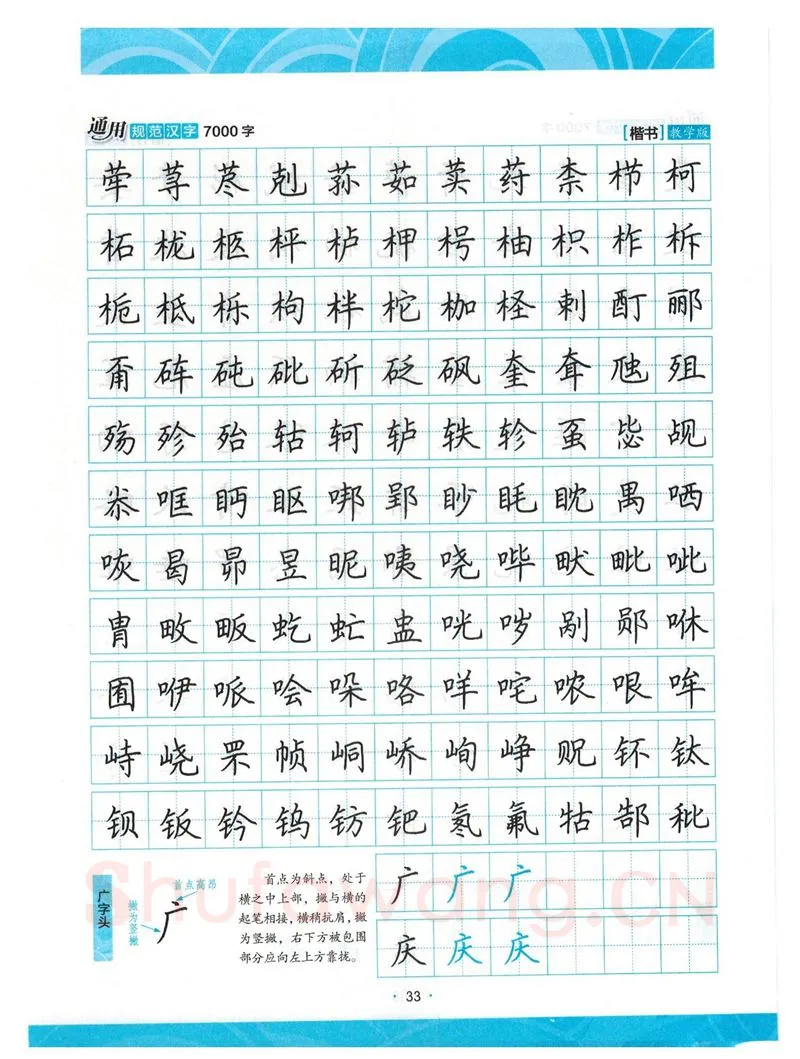 通用规范汉字 7000字
[楷书] 教学版
荦 荨 荩 剋 荪 茹 荬 荮 柰 栉 柯
柘 栊 柩 枰 栌 柙 枵 柚 枳 柞 柝
栀 柢 栎 枸 柈 柁 枷 柽 剌 酊 郦
甭 砗 砘 砒 斫 砭 砜 奎 耷 虺 殂
殇 殄 殆 轱 轲 轳 轶 轸 虿 毖 觇
尜 哐 眄 眍 𠳐 郢 眇 眊 眈 禺 哂
咴 曷 昴 昱 昵 咦 哓 哔 畎 毗 呲
胄 畋 畈 虼 虻 盅 咣 哕 剐 郧 咻
囿 咿 哌 哙 哚 咯 咩 咤 哝 哏 哞
峙 峣 罘 帧 峒 峤 峋 峥 贶 钚 钛
钡 钣 钤 钨 钫 钯 氡 氟 牯 郜 秕
广字头
首点高昂
撇为竖撇
广
首点为斜点，处于
横之中上部，撇与横的
起笔相接，横稍抗肩，撇
为竖撇，右下方被包围
部分应向左上方靠拢。
广 广 广
庆 庆 庆
Shufawang.CN
· 33 ·